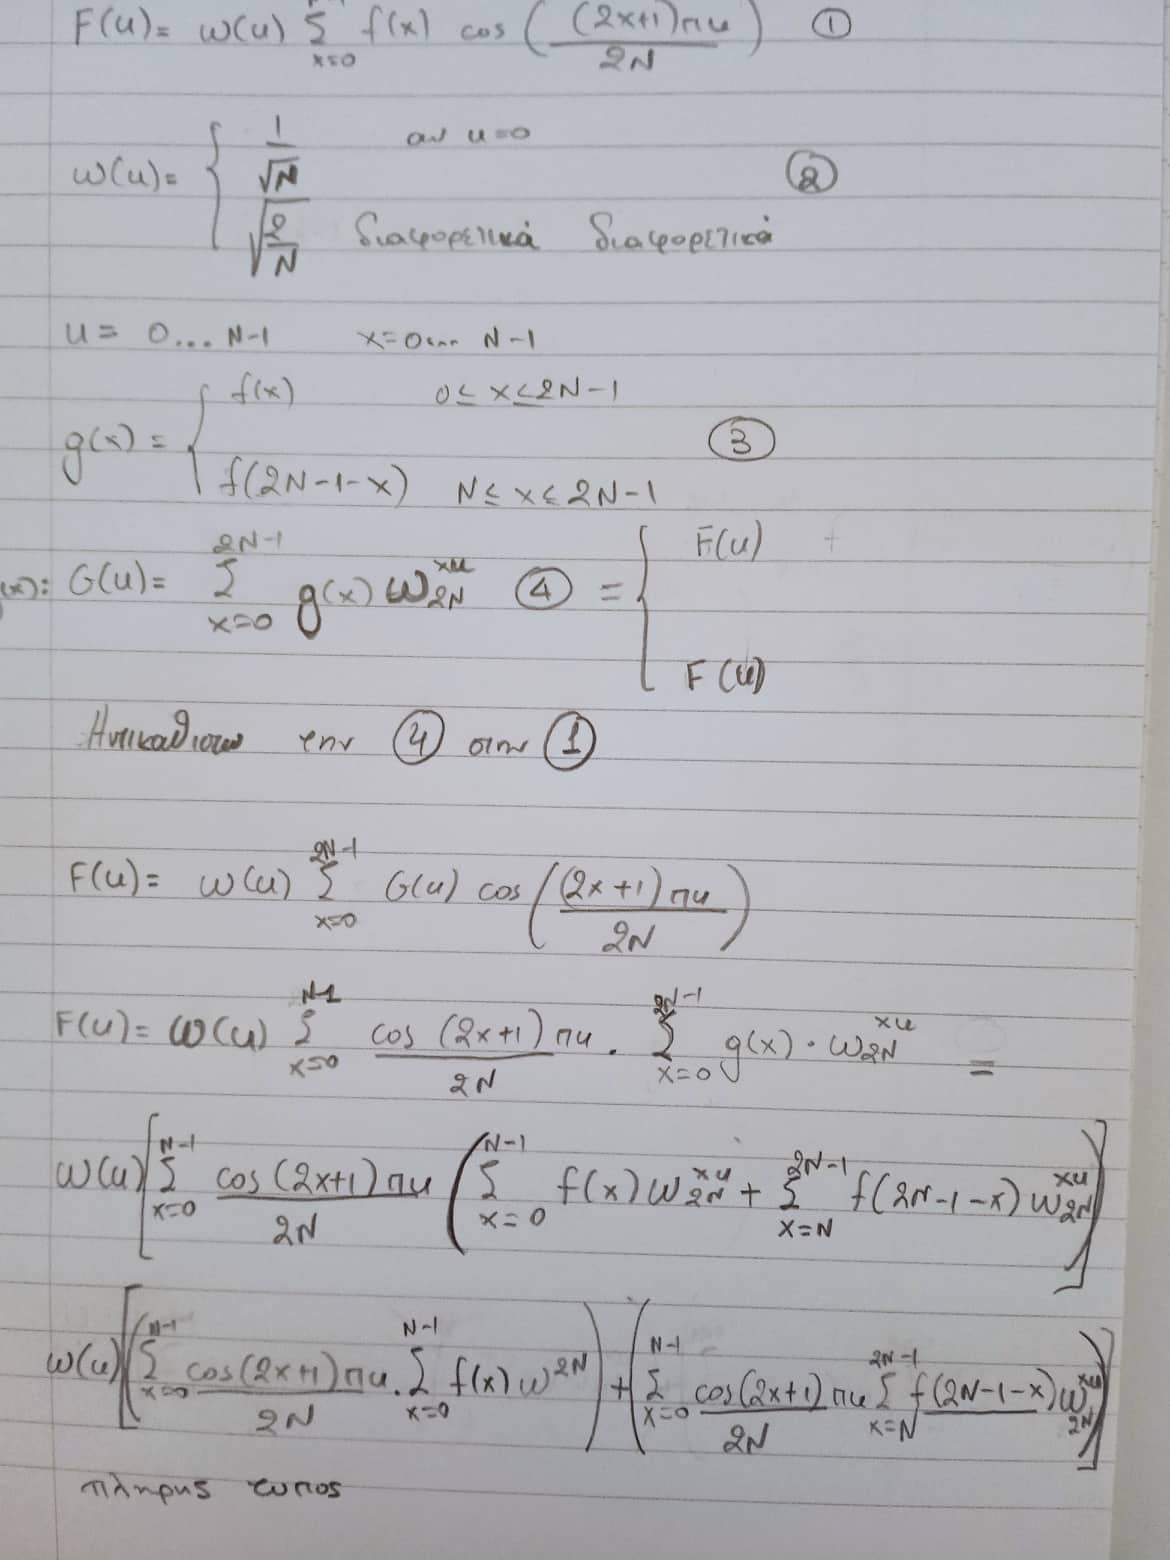 F(u)= w(u) Σ x=0 f(x) cos ( (2x+1)πu / 2N ) ①
w(u)= { 1/√N αν u=0 ②
√(2/N) διαφορετικά διαφορετικά
u= 0... N-1 x=0... N-1
g(x)= { f(x) 0≤ x≤2N-1 ③
f(2N-1-x) N≤ x≤ 2N-1
(x): G(u)= Σ x=0 2N-1 g(x) W 2N xu ④ = { F(u)
F(u)
Αντικαθιστω την ④ στην ①
F(u)= w(u) Σ x=0 2N-1 G(u) cos ( (2x+1)πu / 2N )
F(u)= w(u) Σ x=0 N-1 cos (2x+1)πu / 2N . Σ x=0 2N-1 g(x) · W 2N xu =
w(u) [ Σ x=0 N-1 cos(2x+1)πu / 2N ( Σ x=0 N-1 f(x) W 2N xu + Σ x=N 2N-1 f(2N-1-x) W 2N xu ) ]
w(u) [ ( Σ x=0 N-1 cos(2x+1)πu / 2N . Σ x=0 N-1 f(x) w 2N ) + ( Σ x=0 N-1 cos(2x+1)πu / 2N Σ x=N 2N-1 f(2N-1-x) W 2N xu ) ]
πληρης τυπος